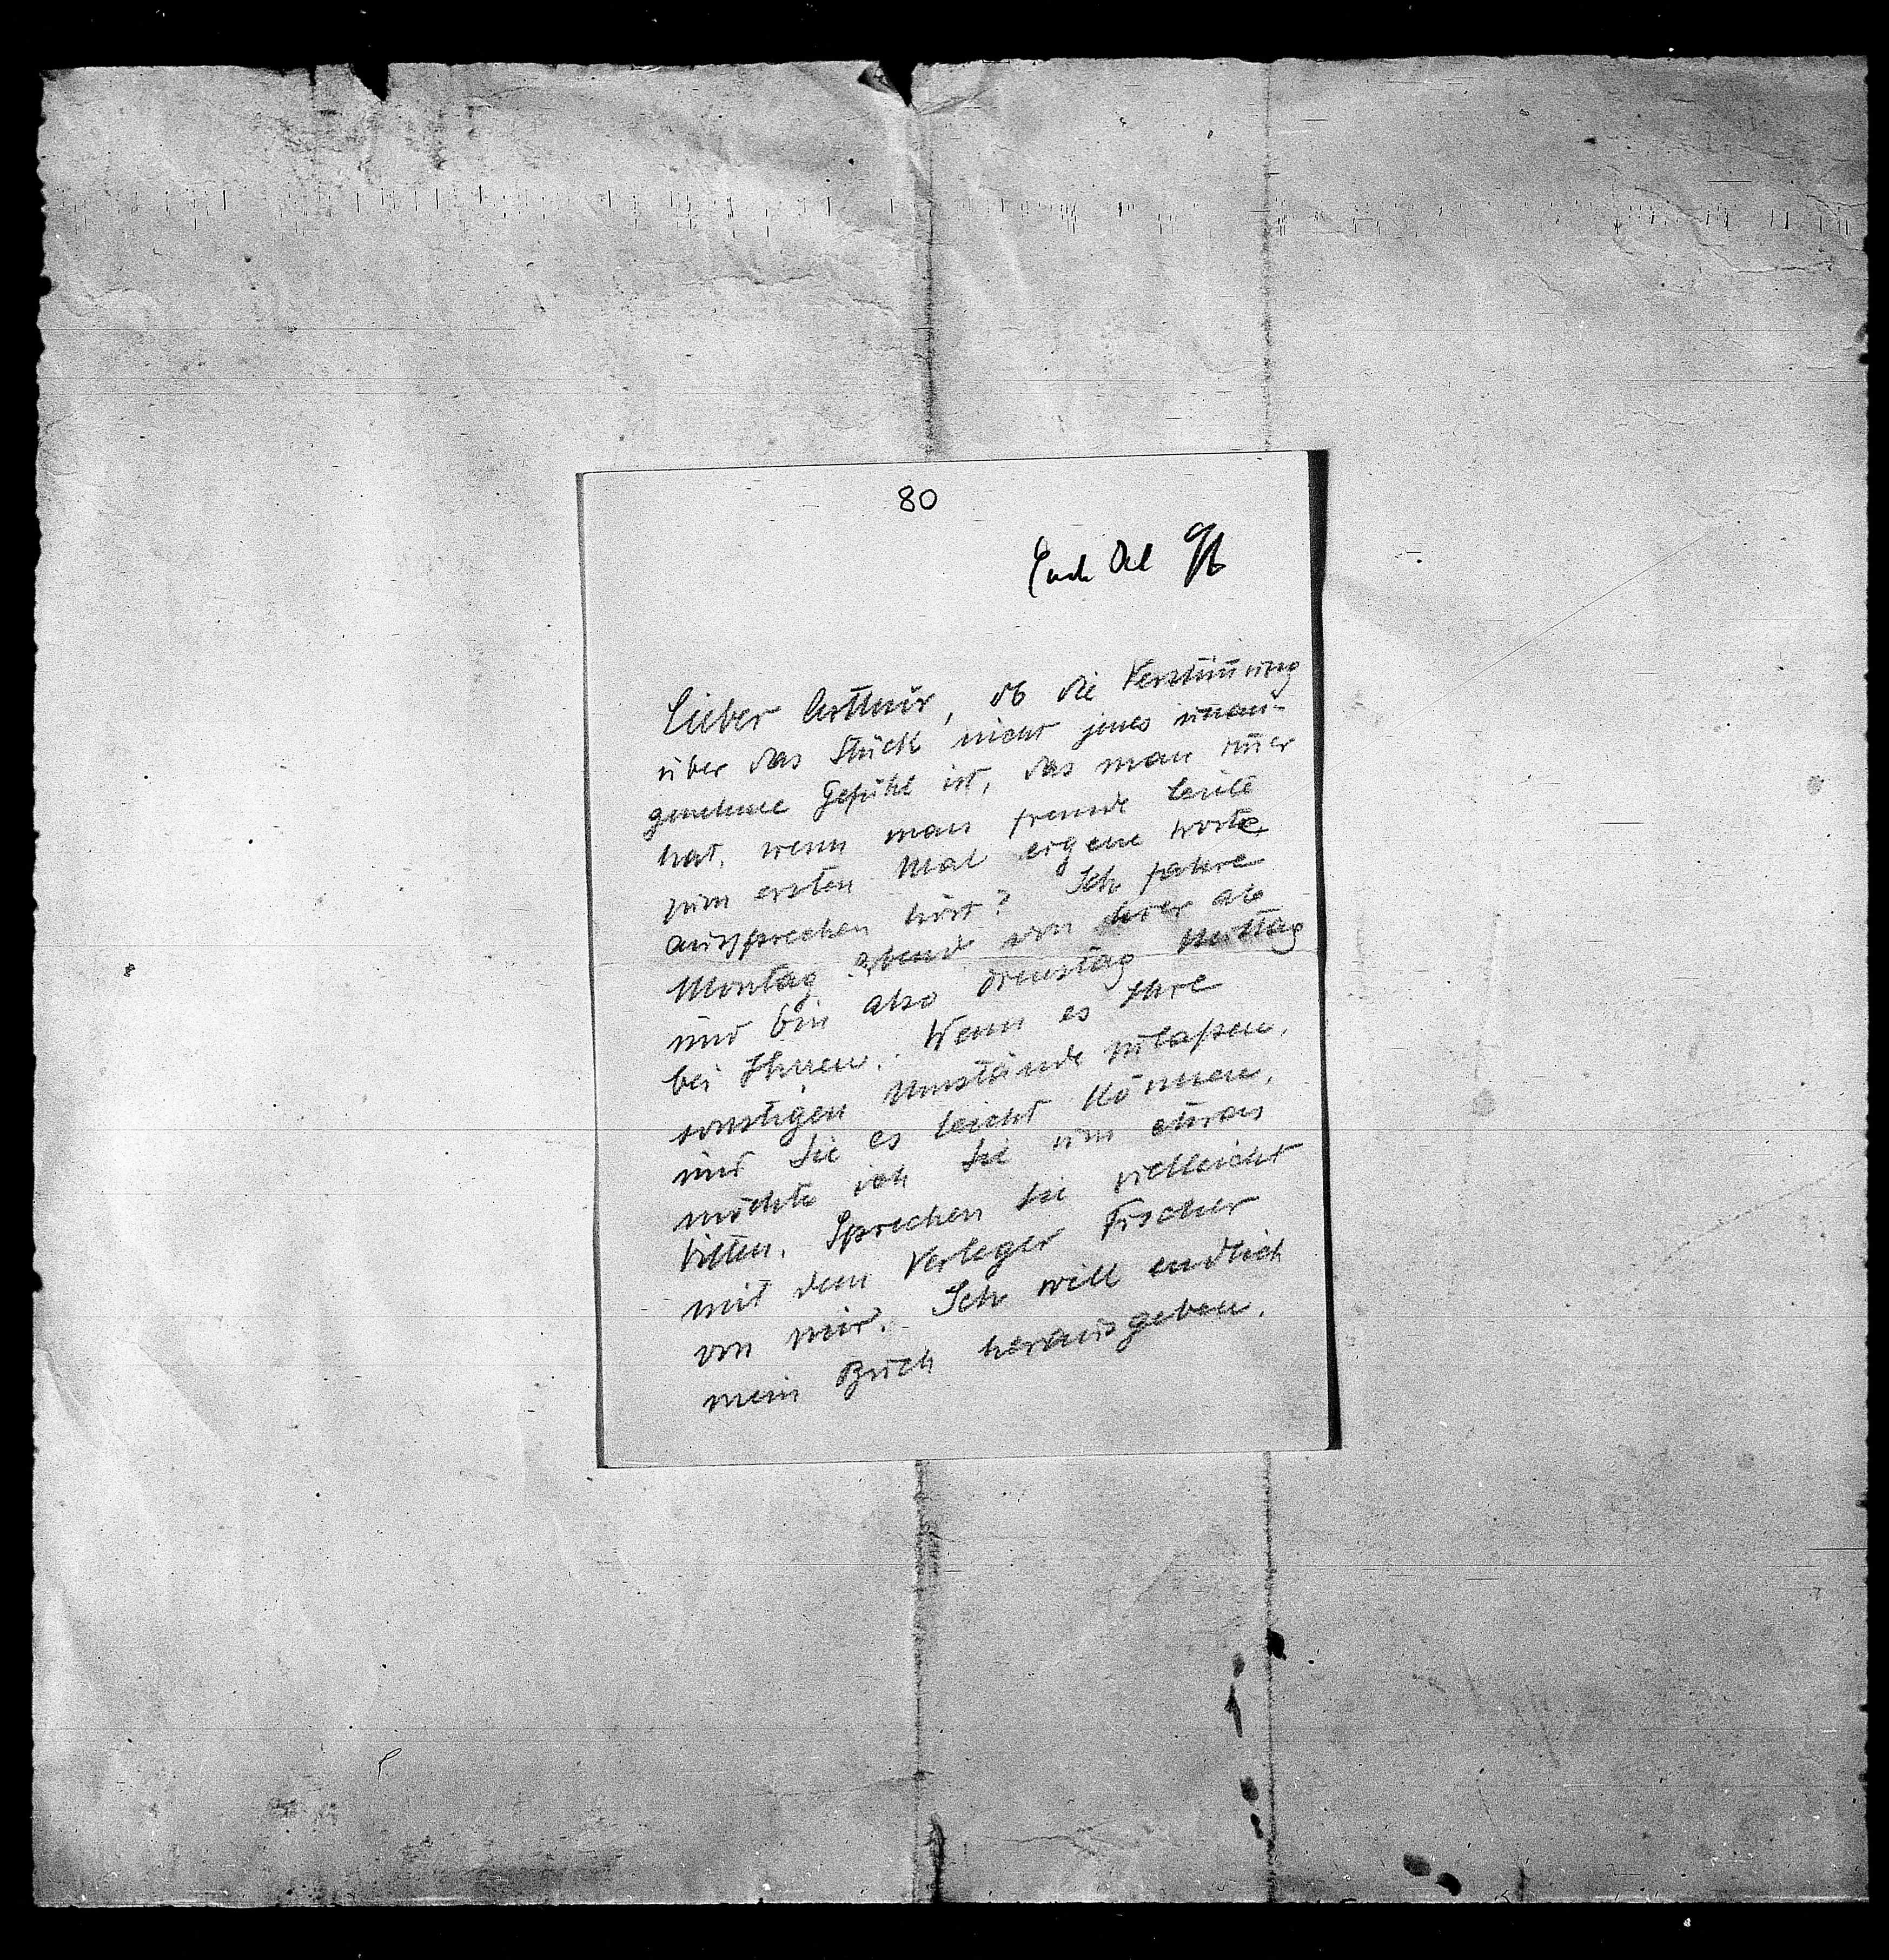 80
Ende Okt 96
Lieber Arthur, ob die Verstim̄ung
über das Stück nicht jenes unan-
genehme Gefühl ist, das man im̄er
hat, wenn man fremde Leute
zum ersten Mal eigene Worte
aussprechen hört? Ich fahre
Montag abend von hier ab
und bin also Dienstag Mittag
bei Ihnen. Wenn es Ihre
sonstigen Umstände zulaßen,
und Sie es leicht können,
möchte ich Sie um etwas
bitten. Sprechen Sie vielleicht
mit dem Verleger Fischer
von mir. Ich will endlich
mein Buch herausgeben.